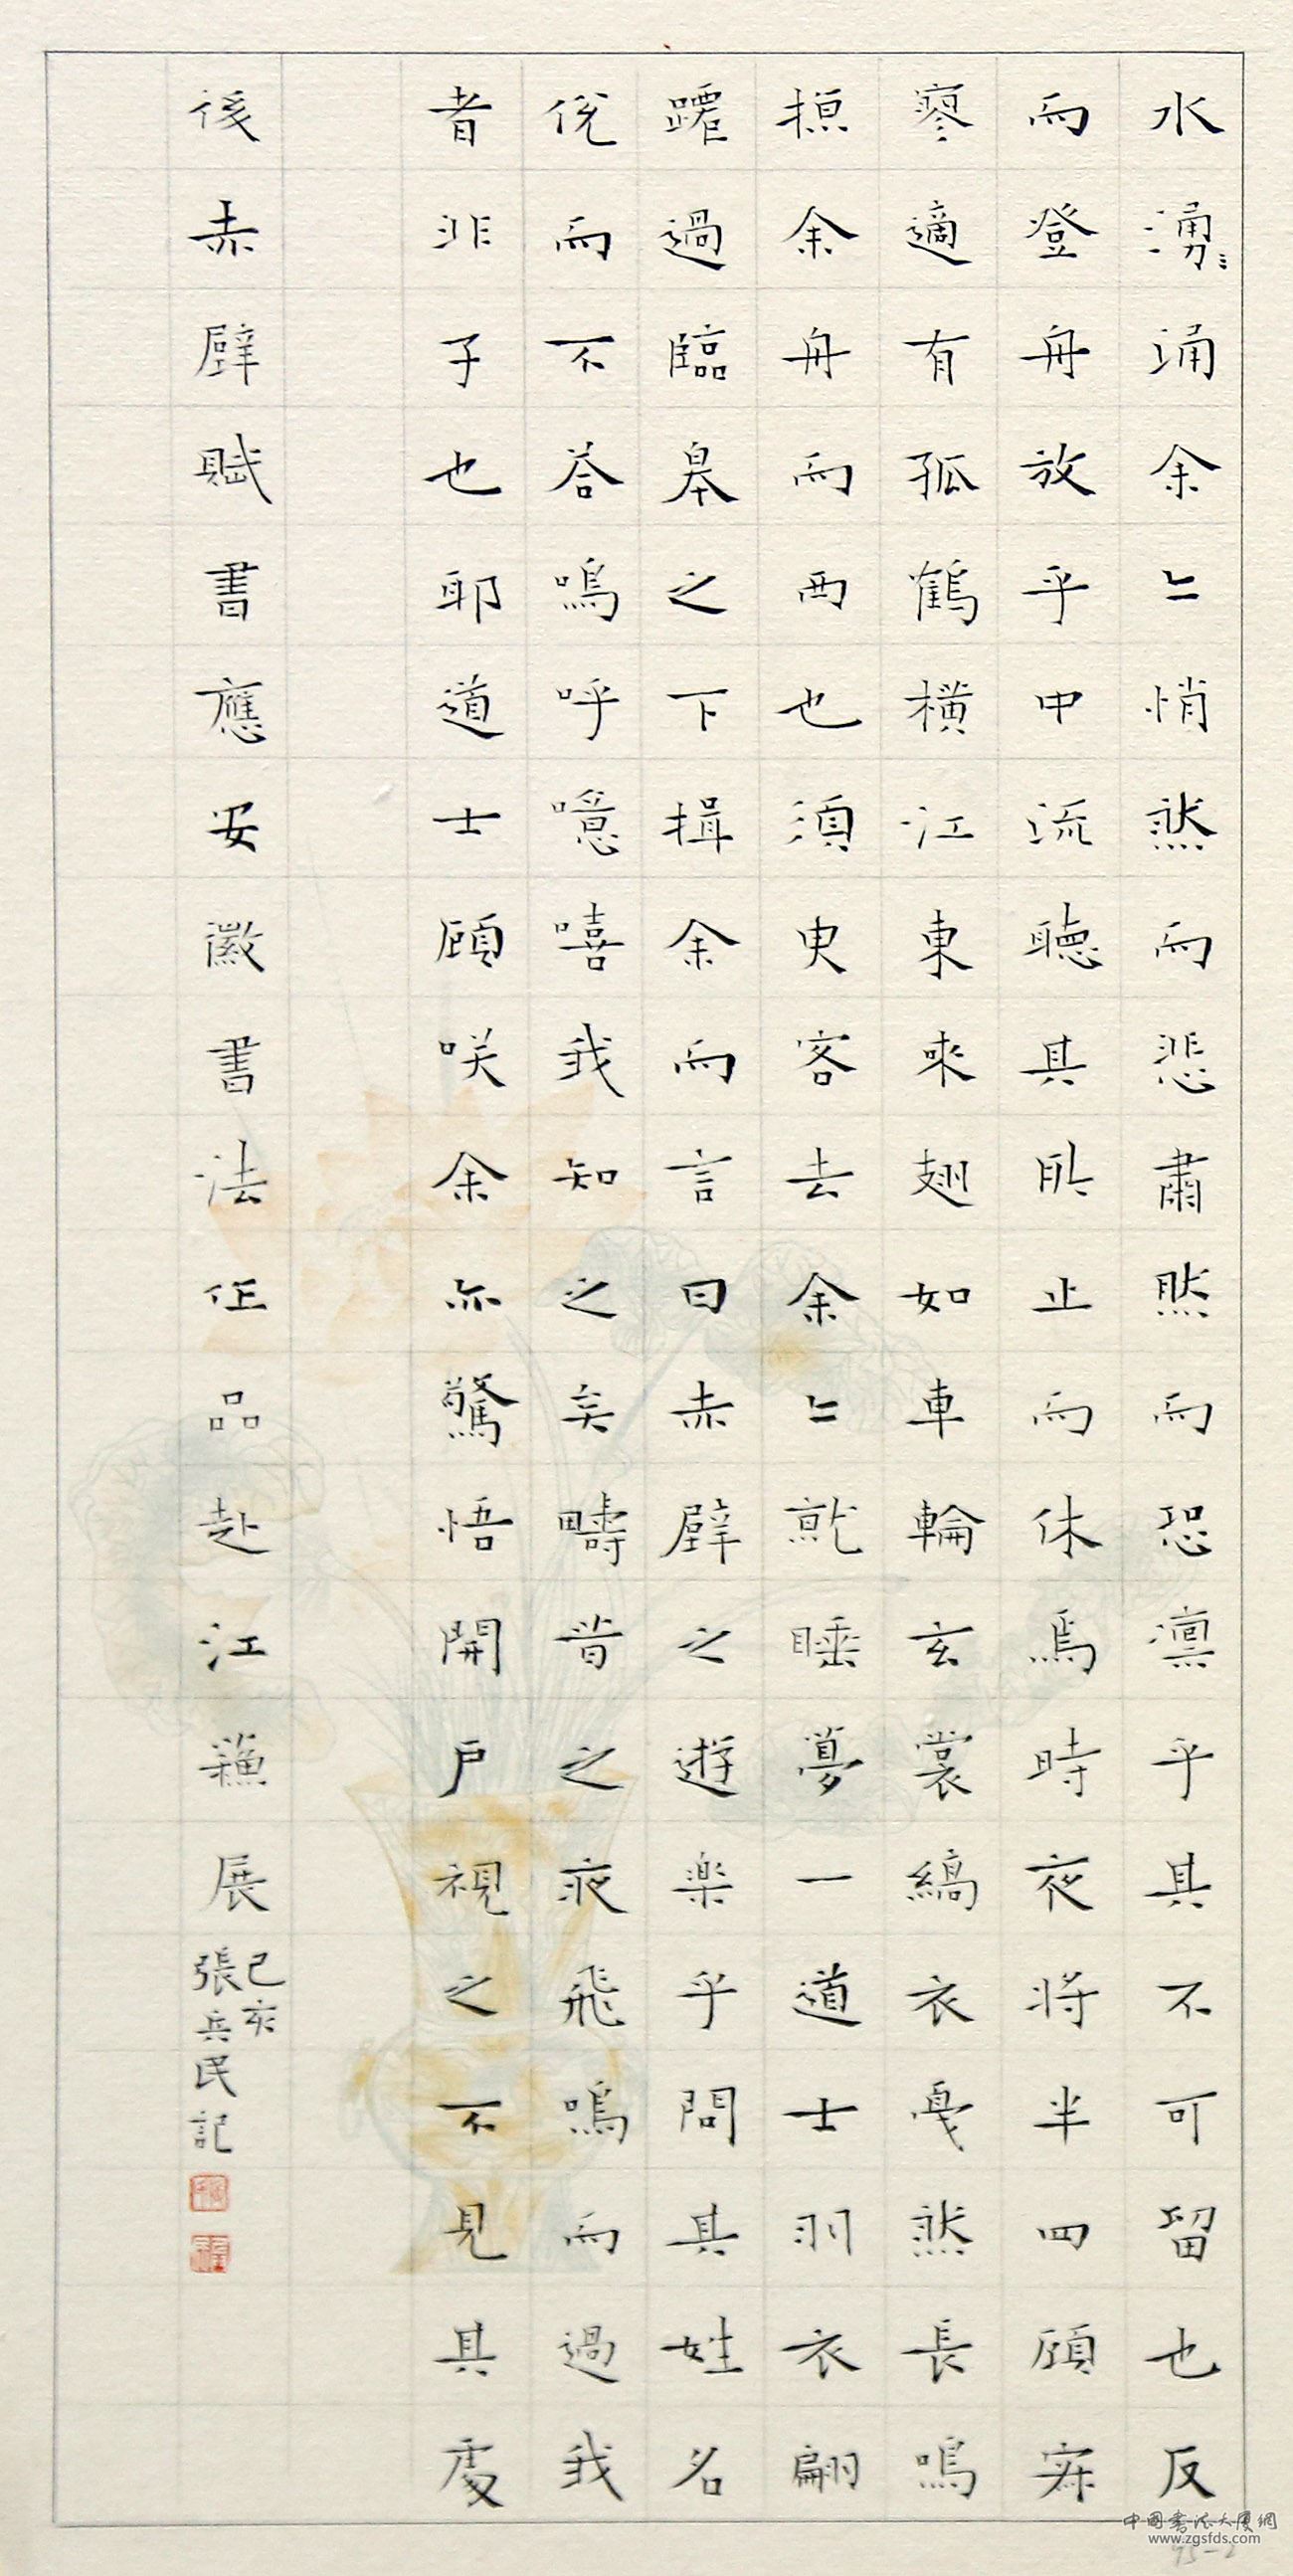 水湧〻涌余〻悄然而悲肅然而恐凛乎其不可留也反
而登舟放乎中流聽其所止而休焉時夜将半四顧寂
寥適有孤鶴横江東来翅如車輪玄裳縞衣戛然長鳴
掠余舟而西也湏臾客去余〻就睡夢一道士羽衣翩
躚過臨皋之下揖余而言曰赤壁之遊楽乎問其姓名
俛而不荅嗚呼噫嘻我知之矣疇昔之夜飛鳴而過我
者非子也耶道士顧咲余亦驚悟開户視之不見其處
後赤壁賦書應安徽書法作品赴江蘇展
己亥
張兵民記
中国書法大厦網
www.zgsfds.com